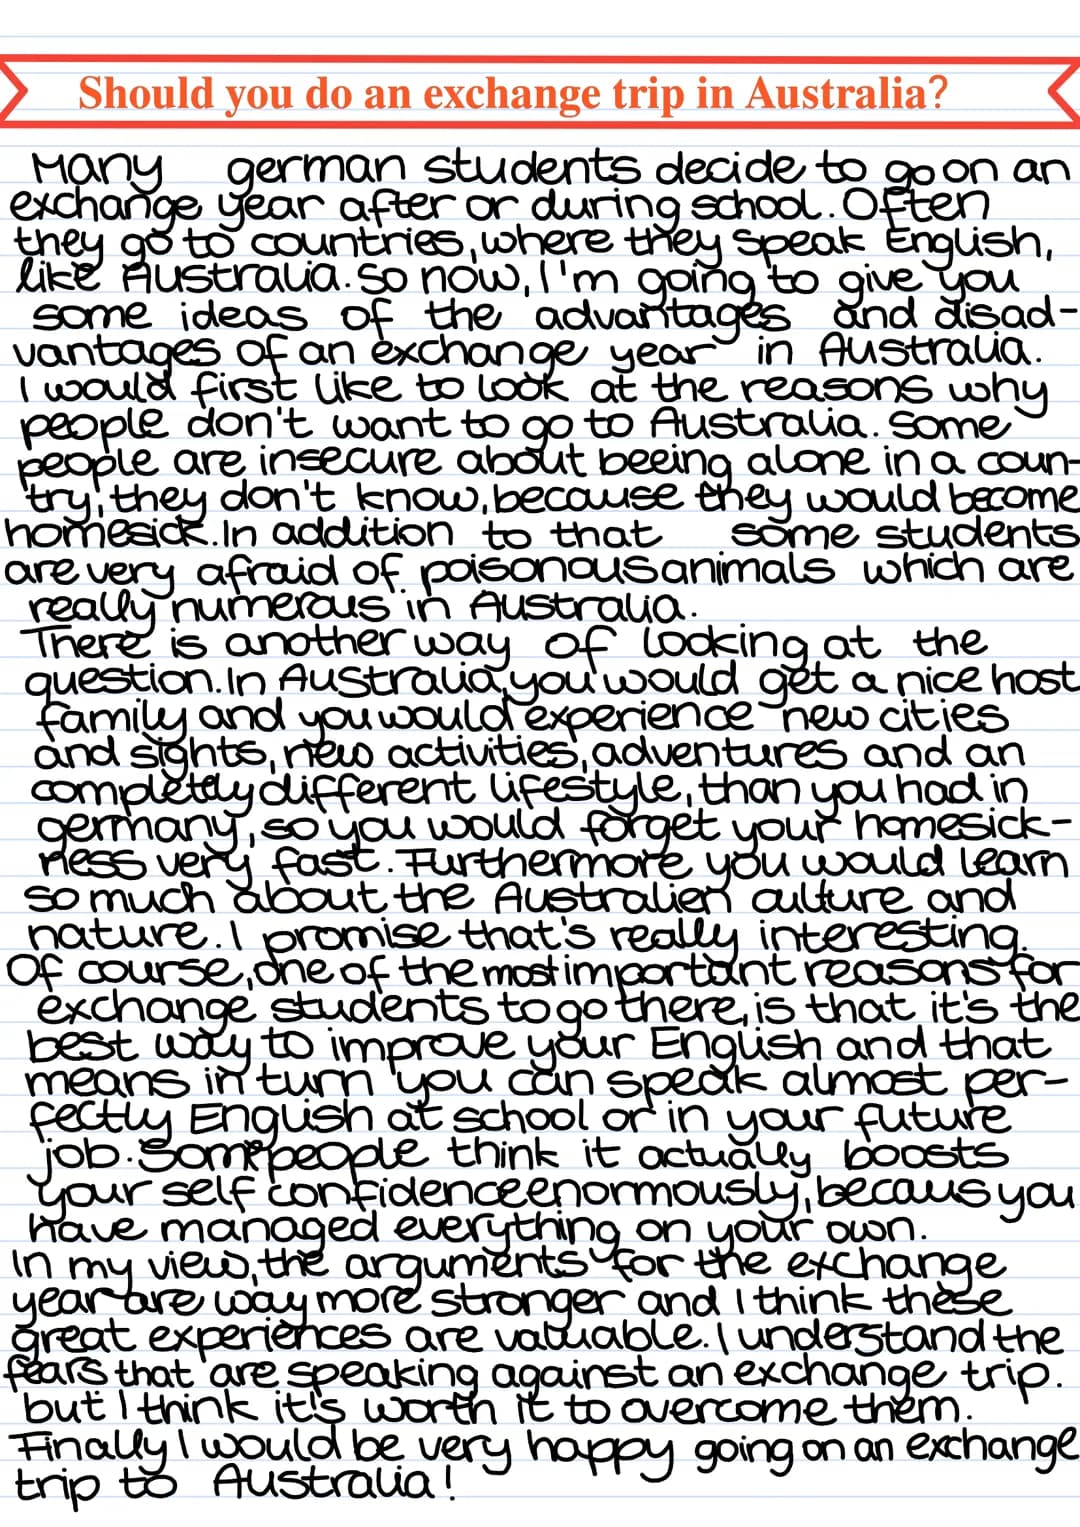 Should you do an exchange trip in Australia?
Many german students decide to go on an
exchange year after or during school. Often
they go to countries, where they speak English,
like Australia. So now, I'm going to give you
some ideas of the advantages and disad-
vantages of an exchange year in Australia.
I would first like to look at the reasons why
people don't want to go to Australia. Some
people are insecure about beeing alone in a coun-
try, they don't know, because they would become
homesick. In addition to that some students
are very afraid of poisonous animals which are
really numerous in Australia.
There is another way of looking at the
question. In Australia, you would get a nice host
family and you would experience new cities
and sights, new activities, adventures and an
completely different lifestyle, than you had in
germany, so you would forget your homesick-
ness very fast. Furthermore you would learn
so much about the Australien culture and
nature. I promise that's really interesting.
Of course, one of the most important reasons for
exchange students to go there, is that it's the
best way to improve your English and that
means in turn you can speak almost per-
fectly English at school or in your future
job. Some people think it actually boosts
your self confidence enormously, becaus you
have managed everything on your own.
In my view, the arguments for the exchange
year are way more stronger and I think these
great experiences are valuable. I understand the
fears that are speaking against an exchange trip.
but I think it's worth it to overcome them.
Finally I would be very happy going on an exchange
trip to Australia!